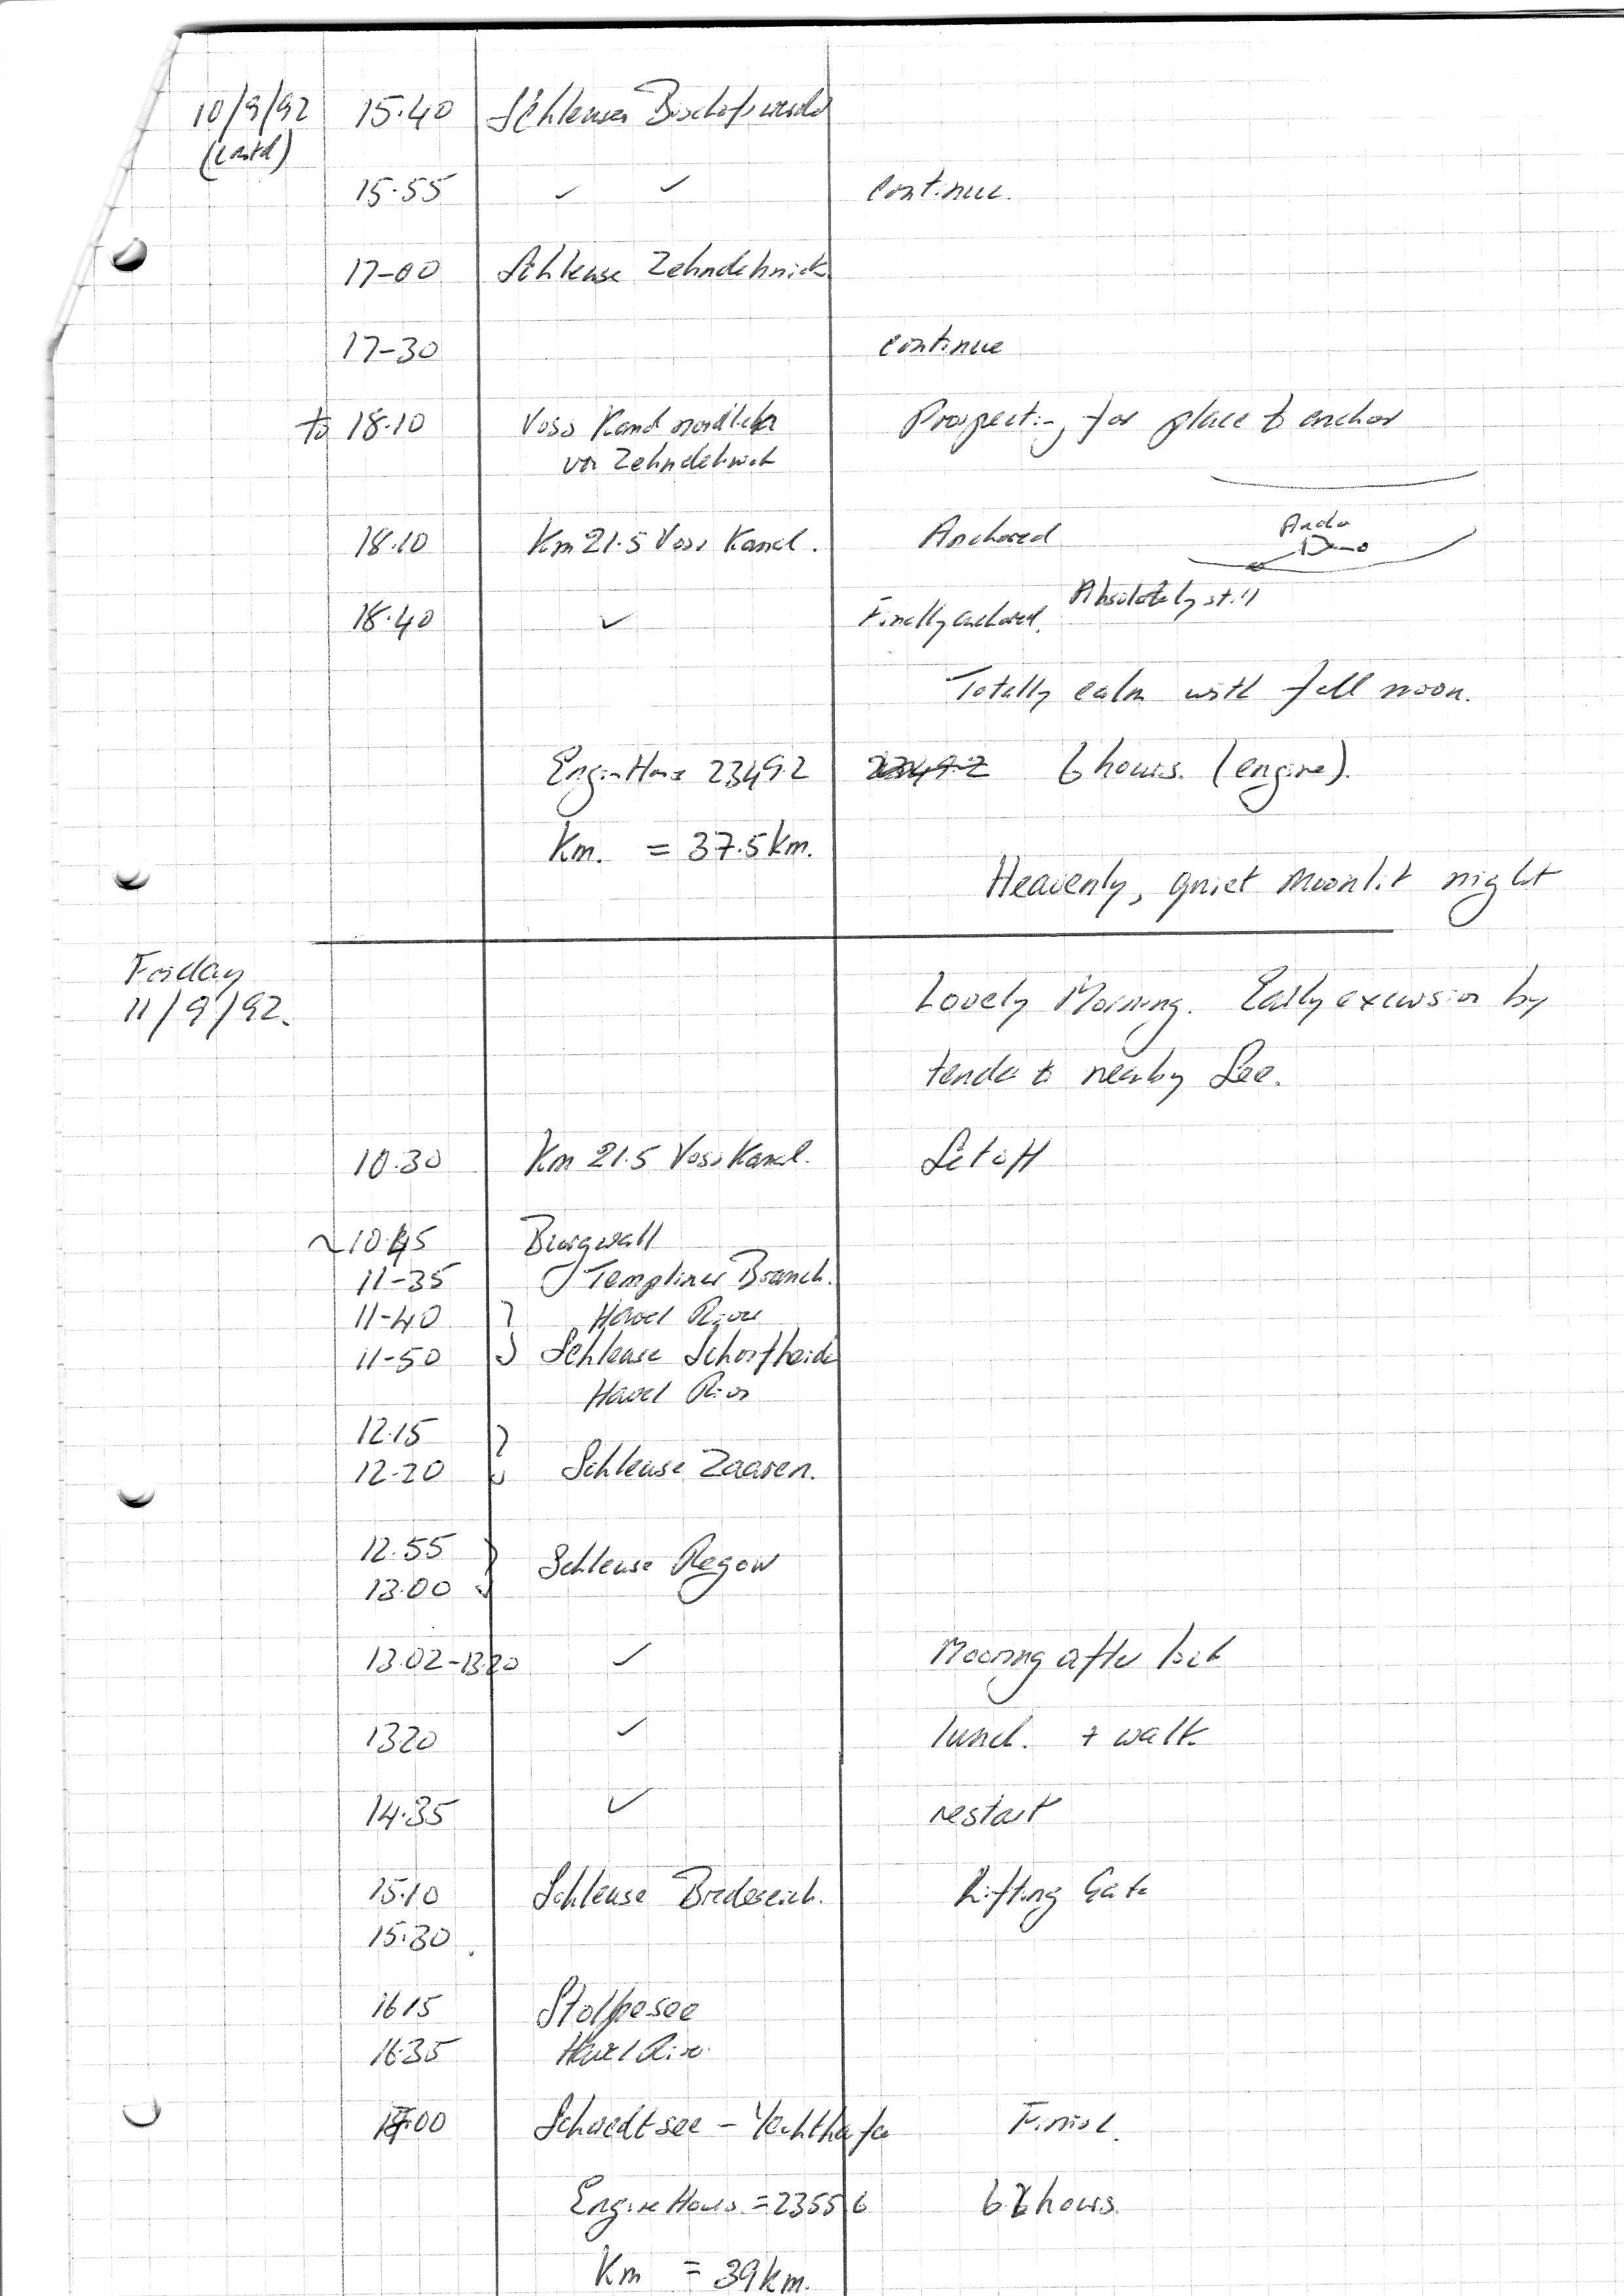 10/9/92 15.40 Schleuse Bischofswerder
(contd)
15.55 ✓ ✓ continue.
17-00 Schleuse Zehndehnick
17-30 continue
to 18.10 Voss Kanal nordlich Prospecting for place to anchor
von Zehndehnick
18.10 Km 21.5 Voss Kanal. Anchored
18.40 ✓ Finally anchored. Absolutely still
Totally calm with full moon.
Engine Hours 2349.2 6 hours. (engine).
Km. = 37.5 km.
Heavenly, quiet moonlit night
Friday
11/9/92.
Lovely Morning. Early excursion by
tender to nearby See.
10.30 Km 21.5 Voss Kanal. Set off
~10.45 Burgwall
11-35 Templiner Branch.
11-40 Havel River
11-50 Schleuse Schorfheide
Havel River
12.15
12.20 Schleuse Zaaren.
12.55
13.00 Schleuse Regow
13.02-13.20 ✓ Mooring after lock
1320 ✓ lunch. + walk.
14.35 ✓ restart
15.10 Schleuse Bredereich. Lifting Gate
15.30
1615 Stolpesee
16.35 Havel River
17.00 Schwedtsee - Yachthafen Finish.
Engine Hours = 2355 6 hours.
Km = 39 km.